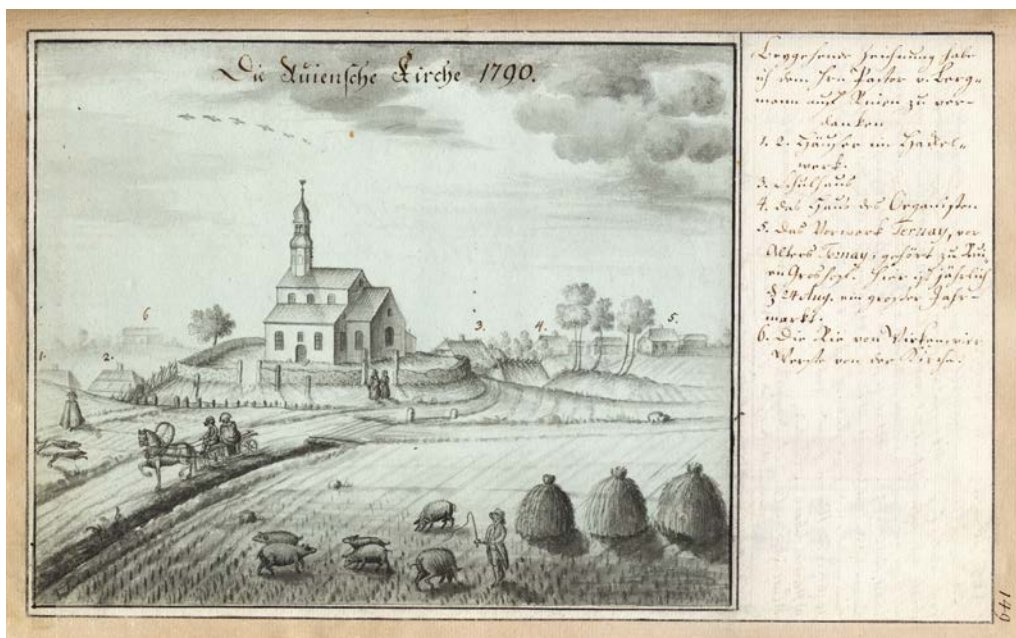 Die Ruiensche Kirche 1790.
6
1.
2.
3.
4.
5.
Beygehende Zeichnung habe
ich dem Hrn Pastor v. Berg=
mann auf Ruien zu ver=
danken
1. 2. Häuser im Hackel=
werk.
3. Schulhaus
4. das Haus des Organisten
5. Das Vorwerk Ternay, vor
Alters gehört zu Rui=
en Groshof. Hier ist jährlich
d 24 Aug. ein großer Jahr=
markt.
6. Die Rie von
Werste von der Kirche.
149